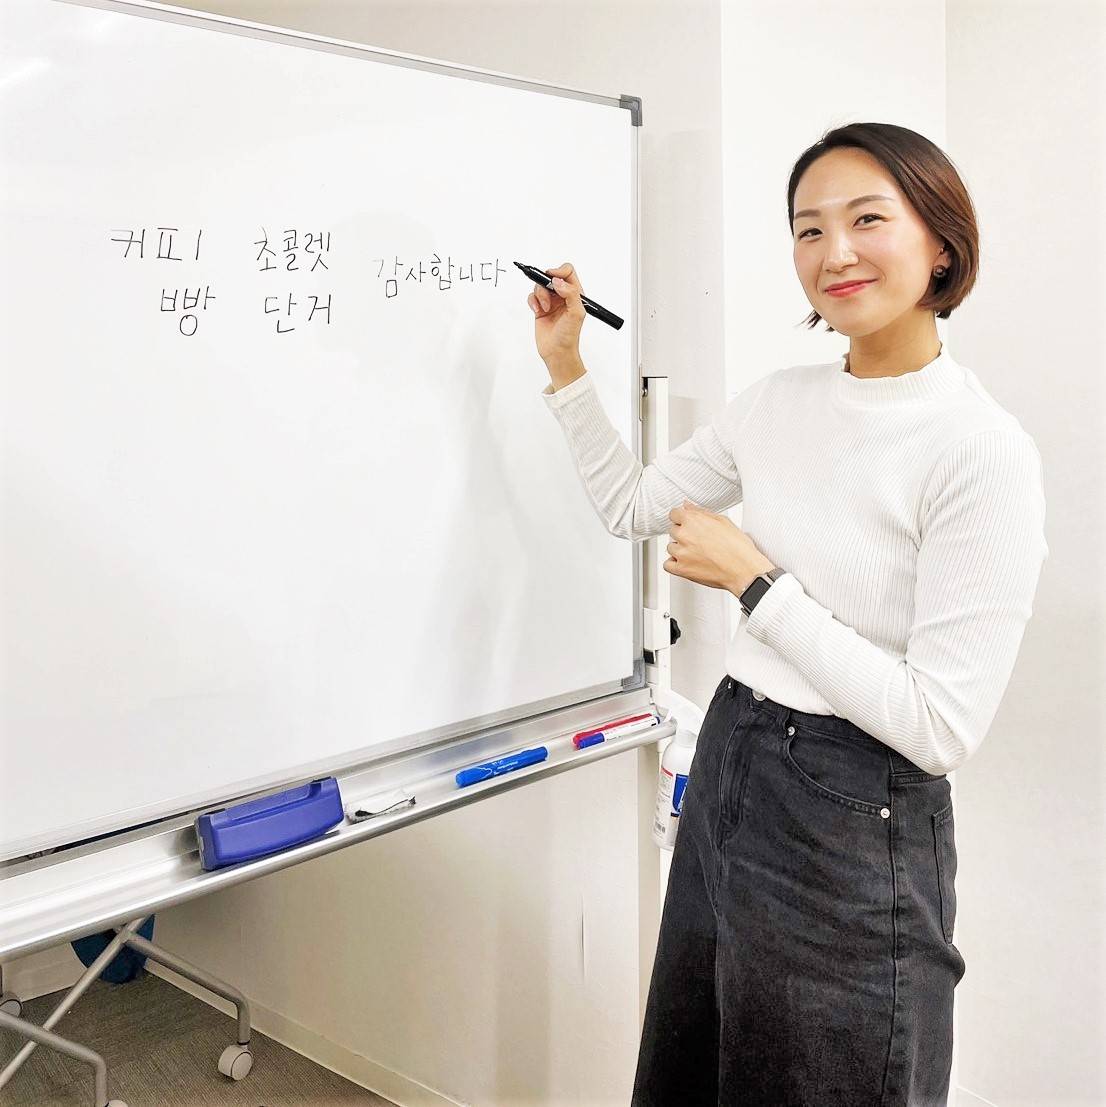 커피 초콜렛
빵 단거
감사합니다